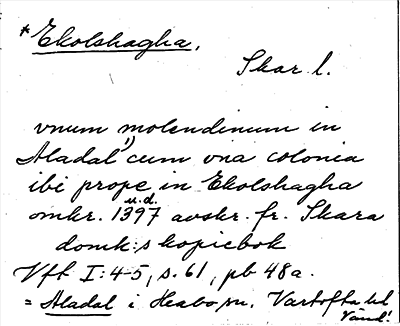 *Ekolshagha.
Skar. l.
vnum molendinum in
Aladal¹⁾ cum vna colonia
ibi prope in Ekolshagha
u.d.
omkr. 1397 avskr. fr. Skara
domk:s kopiebok
Vft I:4-5, s. 61, pb 48a.
= Aladal i Habo sn, Vartofta hd
Vänd!